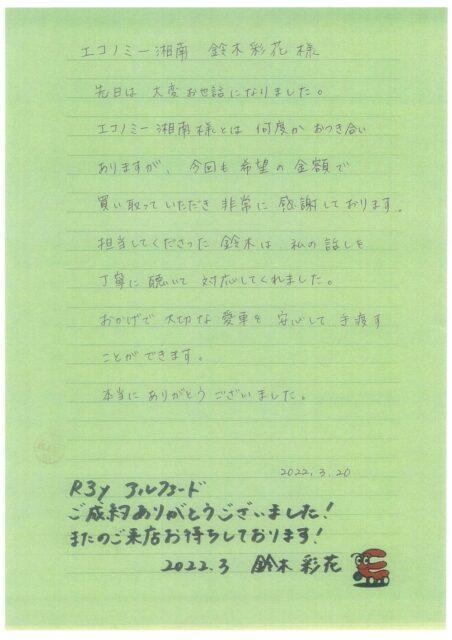 エコノミー湘南 鈴木彩花様
先日は 大変お世話になりました。
エコノミー湘南様とは 何度かおつき合い
ありますが、今回も希望の金額で
買い取っていただき 非常に 感謝しております。
担当してくださった 鈴木は 私の話しを
丁寧に聴いて 対応してくれました。
おかげで 大切な 愛車を 安心して 手渡す
ことができます。
本当に ありがとうございました。
2022.3.20
R3y アルファード
ご成約ありがとうございました!
またのご来店お待ちしております!
2022.3 鈴木 彩花